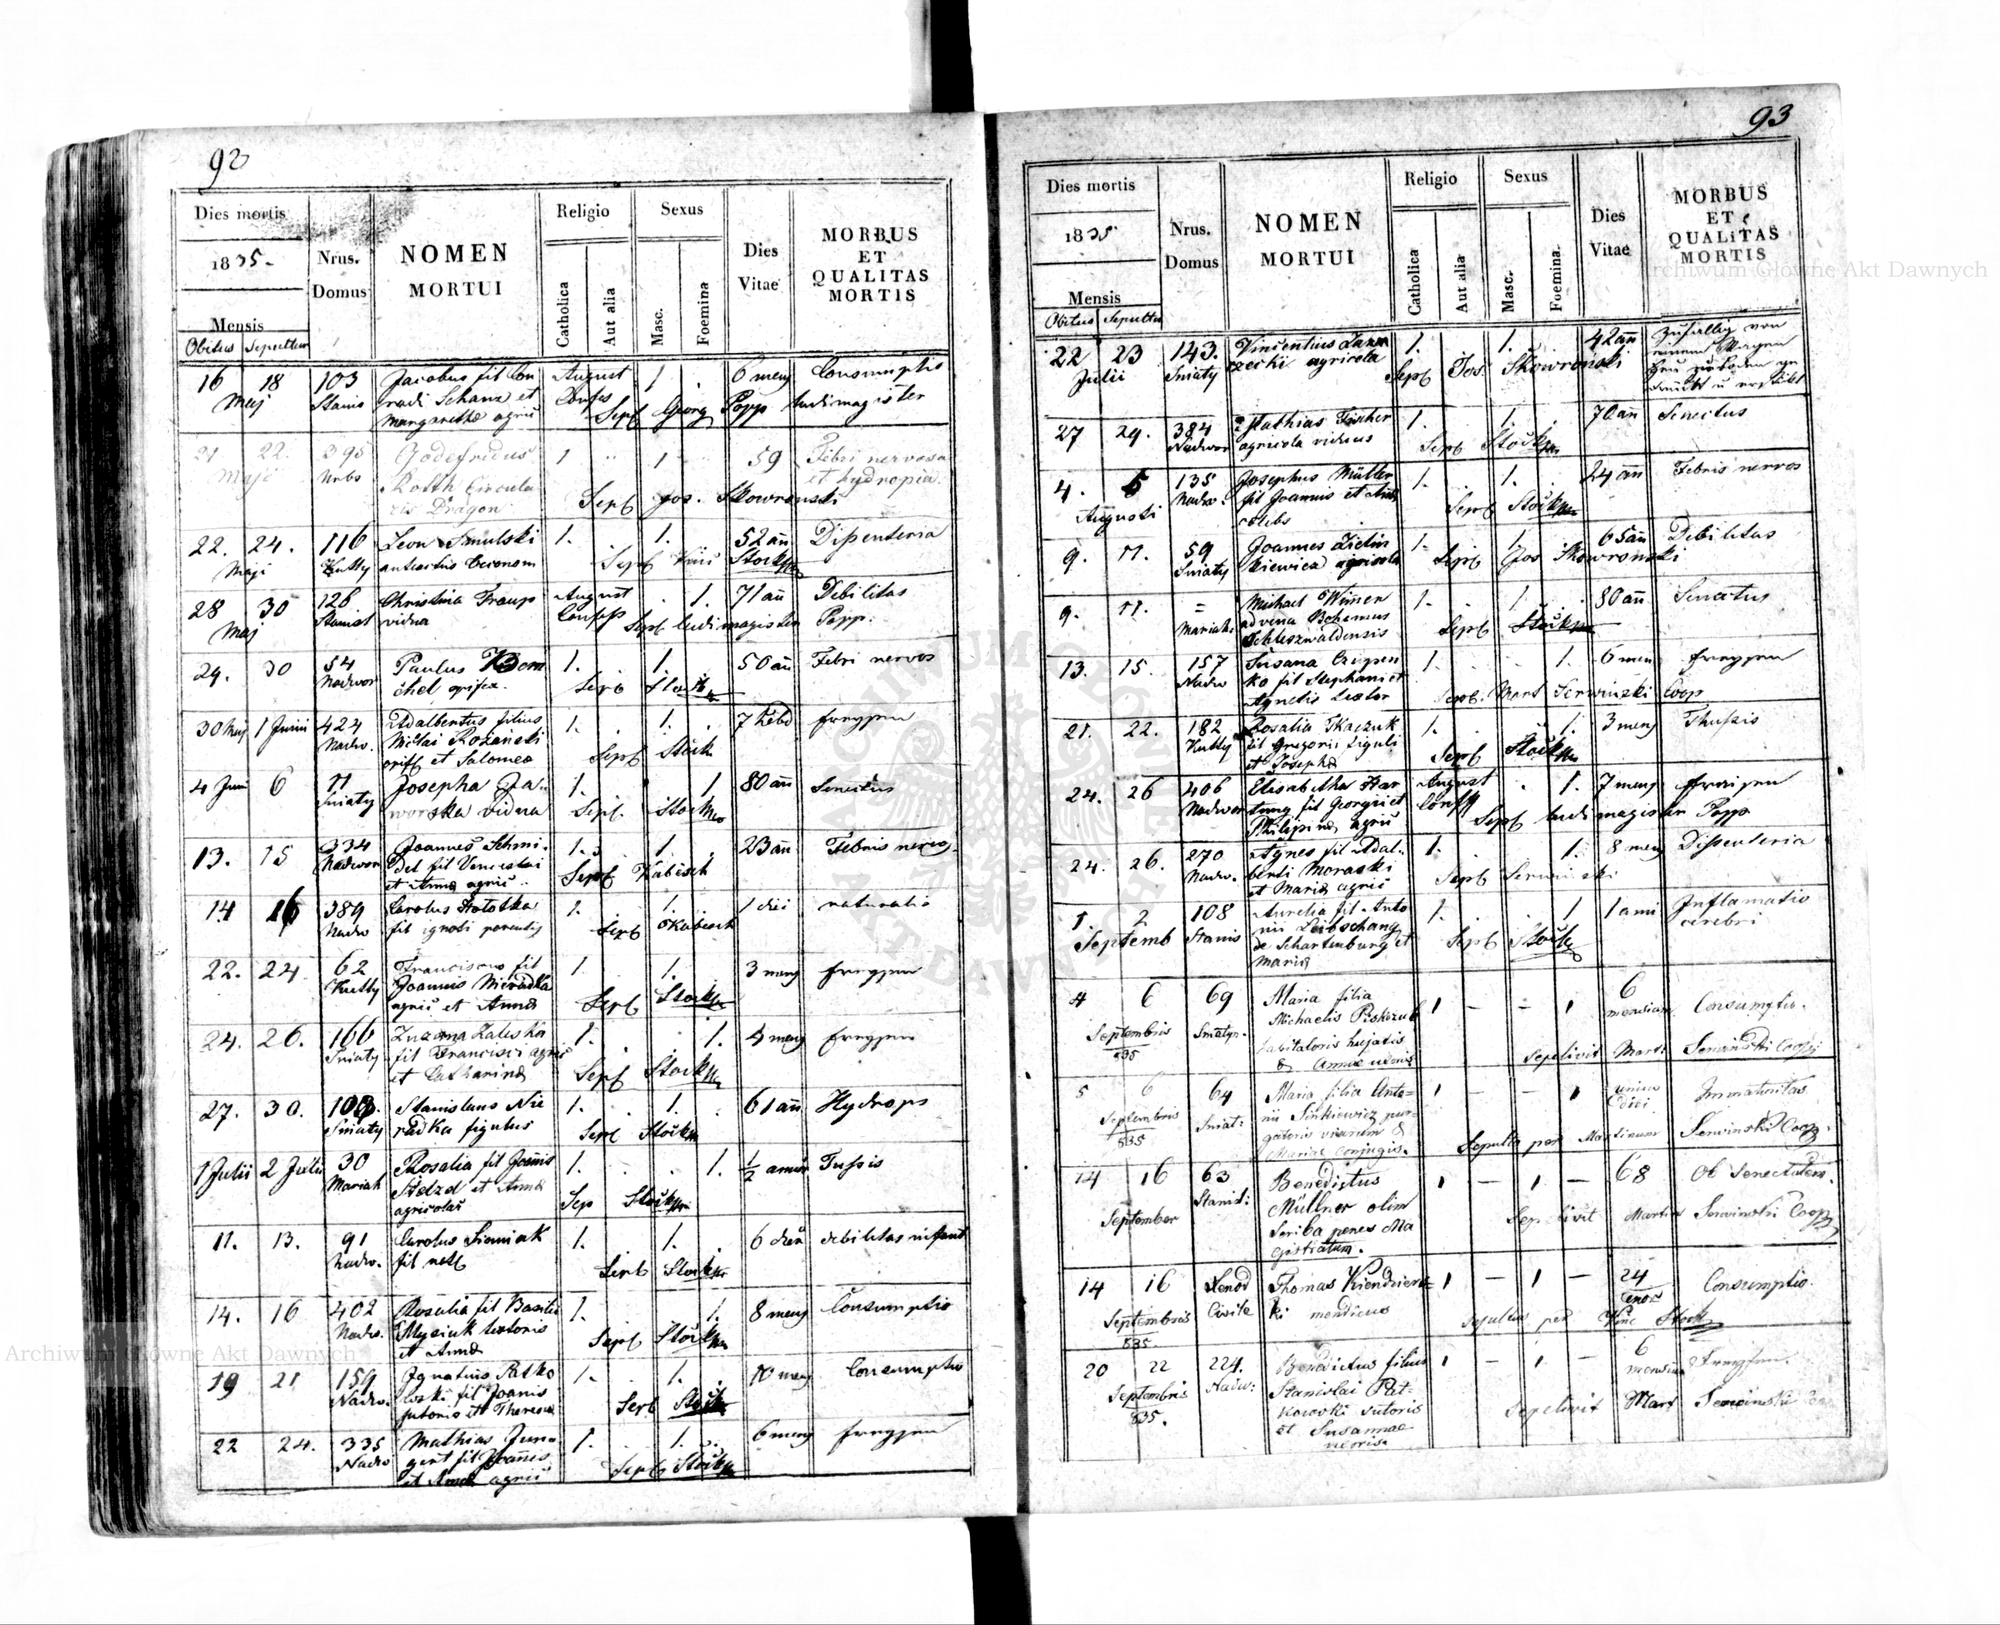 92
Dies mortis
1835.
Mensis
Obitus Sepultur
Nrus.
Domus
NOMEN
MORTUI
Religio
Catholica
Aut alia
Sexus
Masc.
Foemina
Dies
Vitae
MORBUS
ET
QUALITAS
MORTIS
16 18 103 Jacobus fil Con August 1 . 6 mens Consumptio
Maj Stanis radi Schanz et Confes
margarethae agric Sepl Georg Popp ludimagister
21 22. 395 Godefridus 1 " 1 59 Febri nervosa
Maji Urbs Roth Circula et hydropia
ris Dragon Sepl Jos. Skowronski
22. 24. 116 Leon Smulski 1. 1. 52 añ Dissenteria
Maji Kutty Oeconom Sepl Stock
28 30 126 Christina Traup August . 1. 71 añ Debilitas
Maj Stanisl vidua Confess Sepl ludimagister Popp.
29. 30 54 Paulus 1. . 1. . 50 añ Febri nervos
Nadwor chel opifex. Sepl
30 Maj 1 Junii 424 Adalbertus filius 1. 1. . 7 hebd freysen
Nadw. Nicolai Rożański Sepl Stöck
opif et Salomea
4 Juni 6 11 Josepha Ja- 1. . . 1 80 añ Senectus
Sniaty worska vidua Sepl.
13. 15 334 Joannes Schmi- 1. . 1. . 23 añ Febris nervos.
Nadwor Del fil Venceslai Sepl Kabesch
et Anna agric
14 16 389 Carolus 1. 1. 1 diei naturalis
Nadw fil ignoti parentis Sepl Kabesch
22. 24 62 Franciscus fil 1. 1. 3 mens freysen
Kutty Joannis Nieradka Sepl Stöck
agric et Anna
24. 26. 166 Zuzanna Zaleska 1. . . 1. 4 mens freysen
Sniaty fil Francisci agric
et Catharina Sepl Stöck
27. 30. 108. Stanislaus Nie 1. . 1. . 61 añ Hydrops
Sniaty radka figulus Sepl Stöck
1 Julii 2 Julii 30 Rosalia fil Joannis 1. . . 1. ½ Tussis
Mariah Stelzel et Anna
agricolae Sep Stöck
11. 13. 91 Carolus Siemiak 1. 1. 6 diēs debilitas infant
Nadw. fil Sepl Stöck
14. 16 402 Rosalia fil Basilii 1. 1. 8 mens Consumptio
Nadw. Mysiuk textoris Sepl Stöck
et Anna
19 21 159 Ignatius Patko 1. . 1. . 10 mens Consumptio
Nadw. fil Joanis
sutoris et Theresia Sepl Stöck
22 24. 335 Mathias Jun- 1. 1. 6 mens freysen
Nadw gert fil Joannis
et Anna agric Sepl Stöck
93
Dies mortis
1835
Mensis
Obitus Sepultur
Nrus.
Domus
NOMEN
MORTUI
Religio
Catholica
Aut alia
Sexus
Masc.
Foemina.
Dies
Vitae
MORBUS
ET
QUALITAS
MORTIS
22 23 143. Vincentius 1. 1. 42 añ Zufällig von
Julii Sniaty agricola Sepl Jos. Skowronski einem Wagen
27 29. 384 Mathias Fischer 1. 1. 70 añ Senectus
Nadwor agricola viduus Sepl Stöck
4. 5 135 Josephus Müller 1. 1. 24 añ Febris nervos
Augusti Nadw. fil Joannis et Anna Sepl Stöck
celebs
9. 11. 59 Joannes 1. 1. 65 añ Debilitas
Sniaty kiewicz agricola Sepl Jos Skowronski
9. 11. = Michael Wimer 1. 1. 80 añ Senectus
Mariah. advena Bohemus Sepl Stöck
Schleszwaldensis
13. 15. 157 Susana 1. . . 1. 6 men freysen
Nadw ko fil Stephani et
Agnetis textor Sepl. Mart Serwinski Coop
21. 22. 182 Rosalia Tkaczuk 1. . . 1. 3 mens Thussis
Kutty fil Gregorii figuli Sepl Stöck
et Josepha
24. 26 406 Elisabetha Har August . 1. 7 mens fraisen
Nadwor tung fil Georgii et Conff
Philipina agric Sepl ludimagister Popp
24. 26. 270 Agnes fil Adal- 1. . . 1. 8 mens Dissenteria
Nadw. berti Moraski Sepl Serwinski
et Maria agric
1. 2 108 Aurelia fil Anto 1. . . 1 1 ami Inflamatio
Septemb Stanis nii Leibschang Sepl Stöck cerebri
de Schartenburg et
Maria
4 6 69 Maria filia 1 – – 1 6 Consumptio.
Septembris Sniatyn. Michaelis mensium
835 habitatoris hujatis
& Annae uxoris Sepelivit Mart: Serwinski Coop
5 6 64 Maria filia Anto- 1 – – 1 unius Immaturitas
Septembris Sniat: nii Sińkiewicz pur- diei
835 gatoris viarum &
Mariae conjugis. Sepulta per Martinum Serwinski Coop.
14 16 63 Benedictus 1 – 1 – 68 Ob Senectutem.
September Stanisl: Müllner olim
Scriba penes Ma Sepelivit Martin Serwinski Coop
gistratum.
14 16 Xenod Thomas 1 – 1 – 24 Consumptio.
Septembris Civile ki mendicus
835 Sepultus per Vinc Stock
20 22 224. Benedictus filius 1 – 1 – 6 Freysen.
Septembris Nadw: Stanislai Pat- mensium
835. kowski sutoris Sepelivit Mart Serwinski
et Susannae
uxoris
Archiwum Główne Akt Dawnych
Archiwum Główne Akt Dawnych
ARCHIWUM GŁÓWNE AKT DAWNYCH